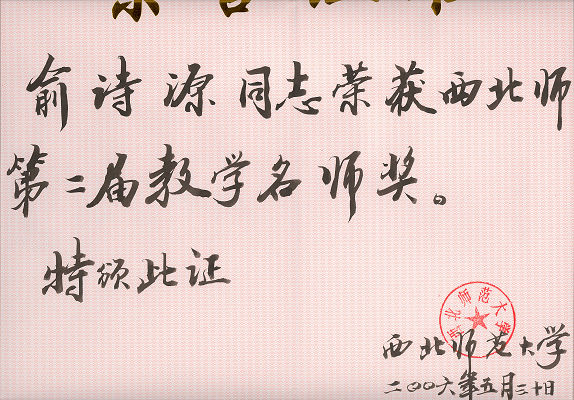 俞诗源同志荣获西北师
第二届教学名师奖。
特颁此证
西北师范大学
西北师范大学
二〇〇六年五月三十日